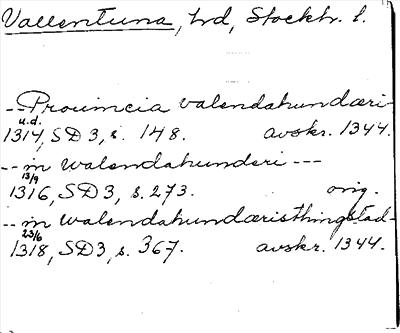 Vallentuna, hd, Stockh. l.
-- Prouincia valendahundæri
u.d.
1314, SD 3, s. 148. avskr. 1344.
-- in walendahunderi ---
13/9
1316, SD 3, s. 273. orig.
-- in walendahundæristhingstad-
23/6
1318, SD 3, s. 367. avskr. 1344.